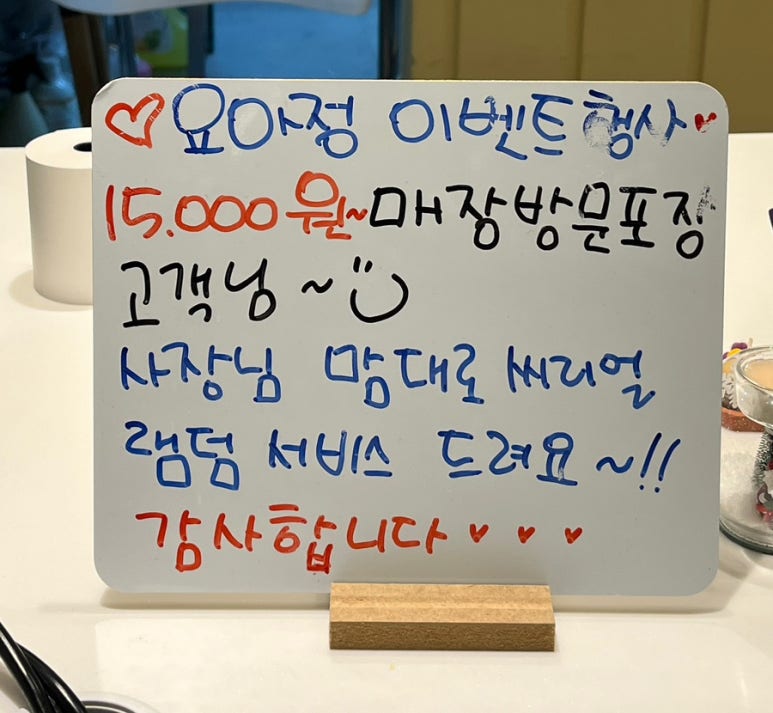 ♡요아정 이벤트행사♥
15.000원~매장방문포장
고객님 ~
사장님 맘대로 씨리얼
램덤 서비스 드려요~!!
감사합니다♥♥♥